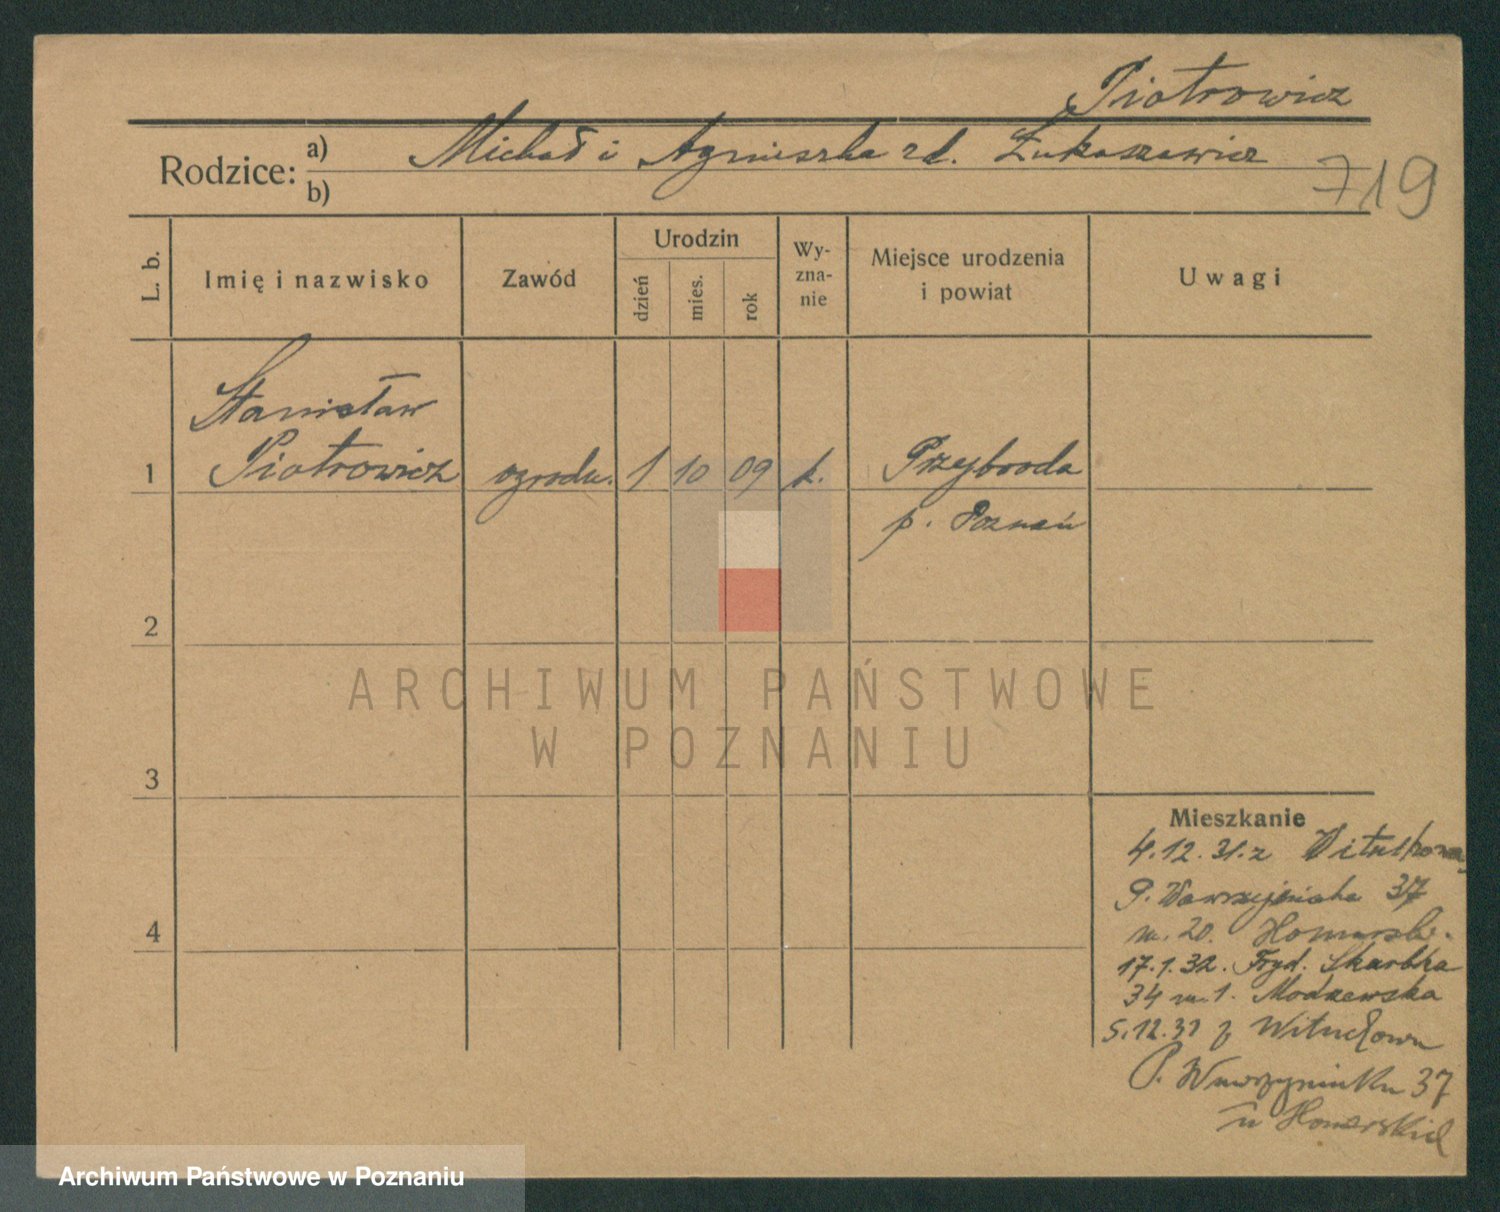 Piotrowicz
Rodzice: a) Michał i Agnieszka zd. Łukaszewicz
b)
719
L. b.
Imię i nazwisko
Zawód
Urodzin
dzień
mies.
rok
Wy-
zna-
nie
Miejsce urodzenia
i powiat
Uwagi
Stanisław
1 Piotrowicz ogrodn. 1 10 09 k. Przybroda
p. Poznań
2
3
4
Mieszkanie
4.12.31. z
P. Wawrzyniaka 37
m. 20.
17.1.32. Fryd. Skarbka
34 m. 1. Modzewska
5.12.32 z
P. Wawrzyniaka 37
ARCHIWUM PAŃSTWOWE
W POZNANIU
Archiwum Państwowe w Poznaniu